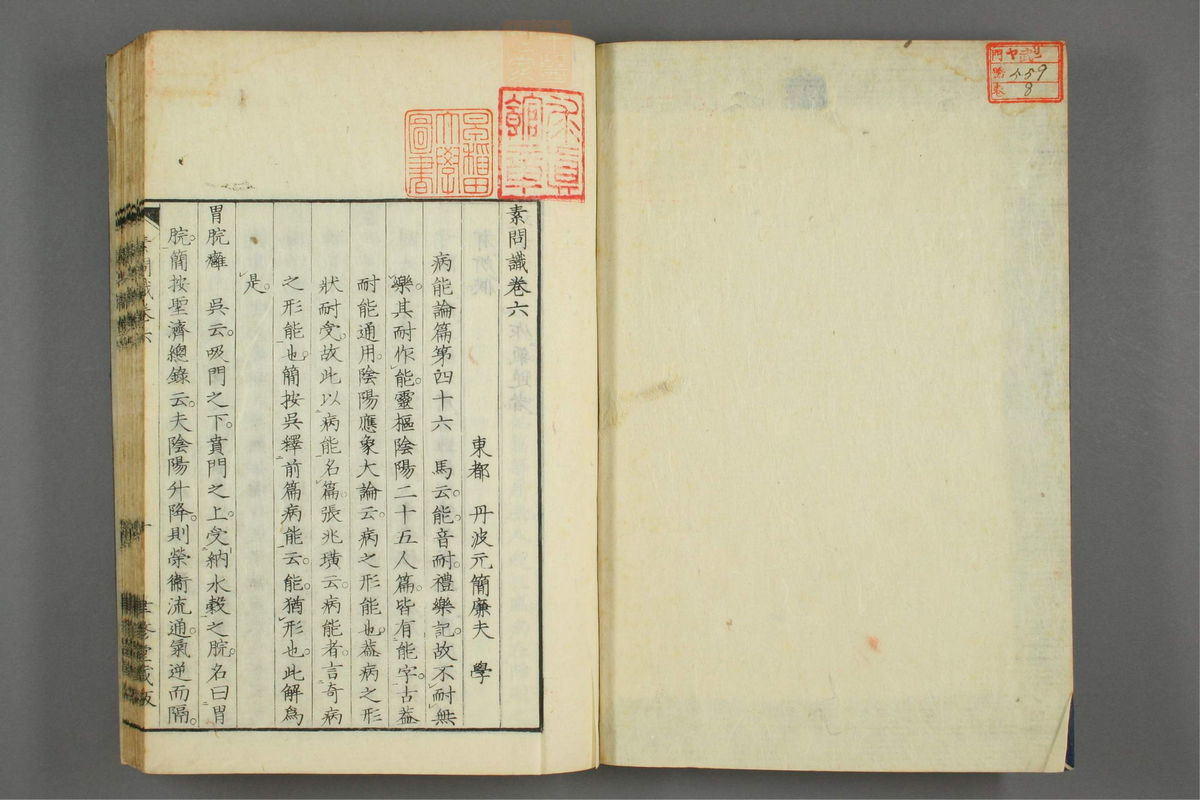 門 ヤ
號 459
巻 8
早稲田大學圖書
素問識卷六
東都 丹波元簡廉夫 學
病能論篇第四十六 馬云。能。音耐。禮樂記。故不耐無
樂。其耐作能。靈樞陰陽二十五人篇。皆有能字。古蓋
耐能通用。陰陽應象大論云。病之形能也。蓋病之形
狀耐受。故此以病能名篇。張兆璜云。病能者。言奇病
之形能也。簡按吳釋前篇病能云。能。猶形也。此解為
是。
胃脘癰 吳云。吸門之下。賁門之上。受納水穀之脘。名曰胃
脘。簡按聖濟總錄云。夫陰陽升降。則榮衛流通。氣逆而隔。
素問識卷六